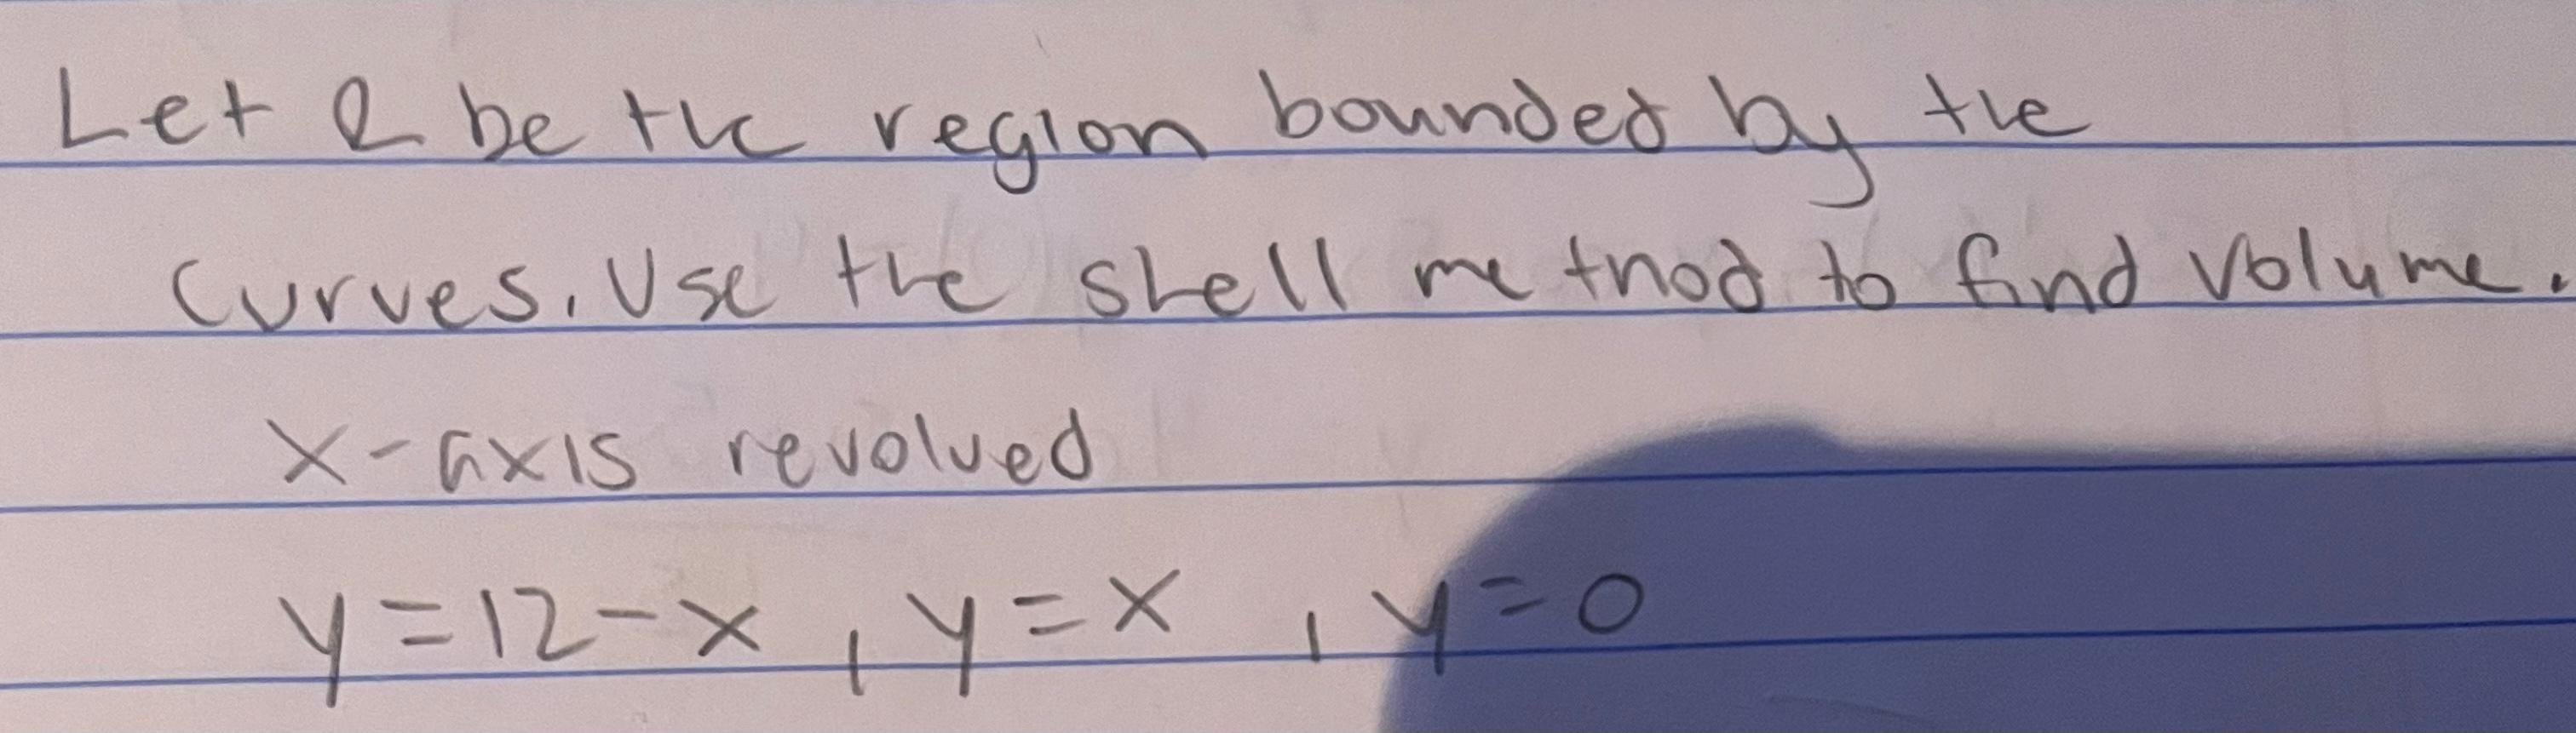 Let R be the region bounded by the
curves. Use the shell method to find volume.
x-axis revolved
y=12-x, y=x, y=0